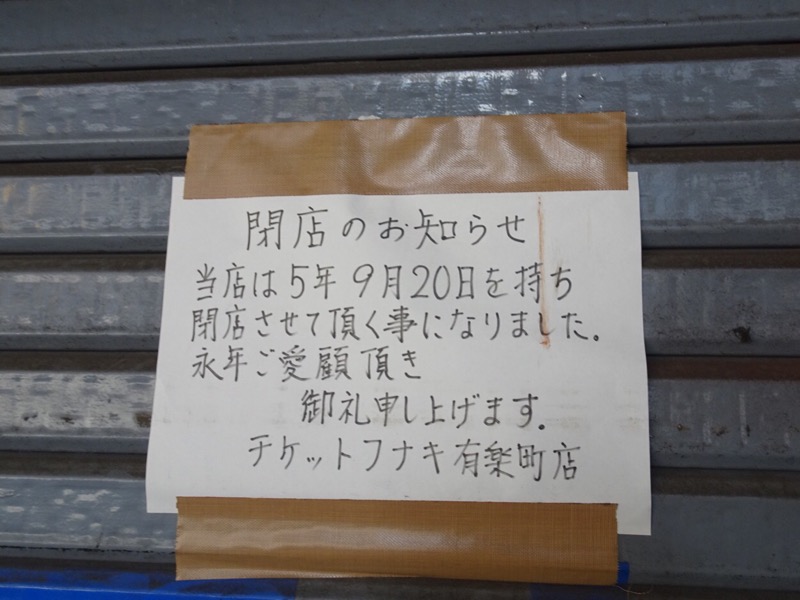 閉店のお知らせ
当店は5年9月20日を持ち
閉店させて頂く事になりました。
永年ご愛顧頂き
御礼申し上げます。
チケットフナキ有楽町店